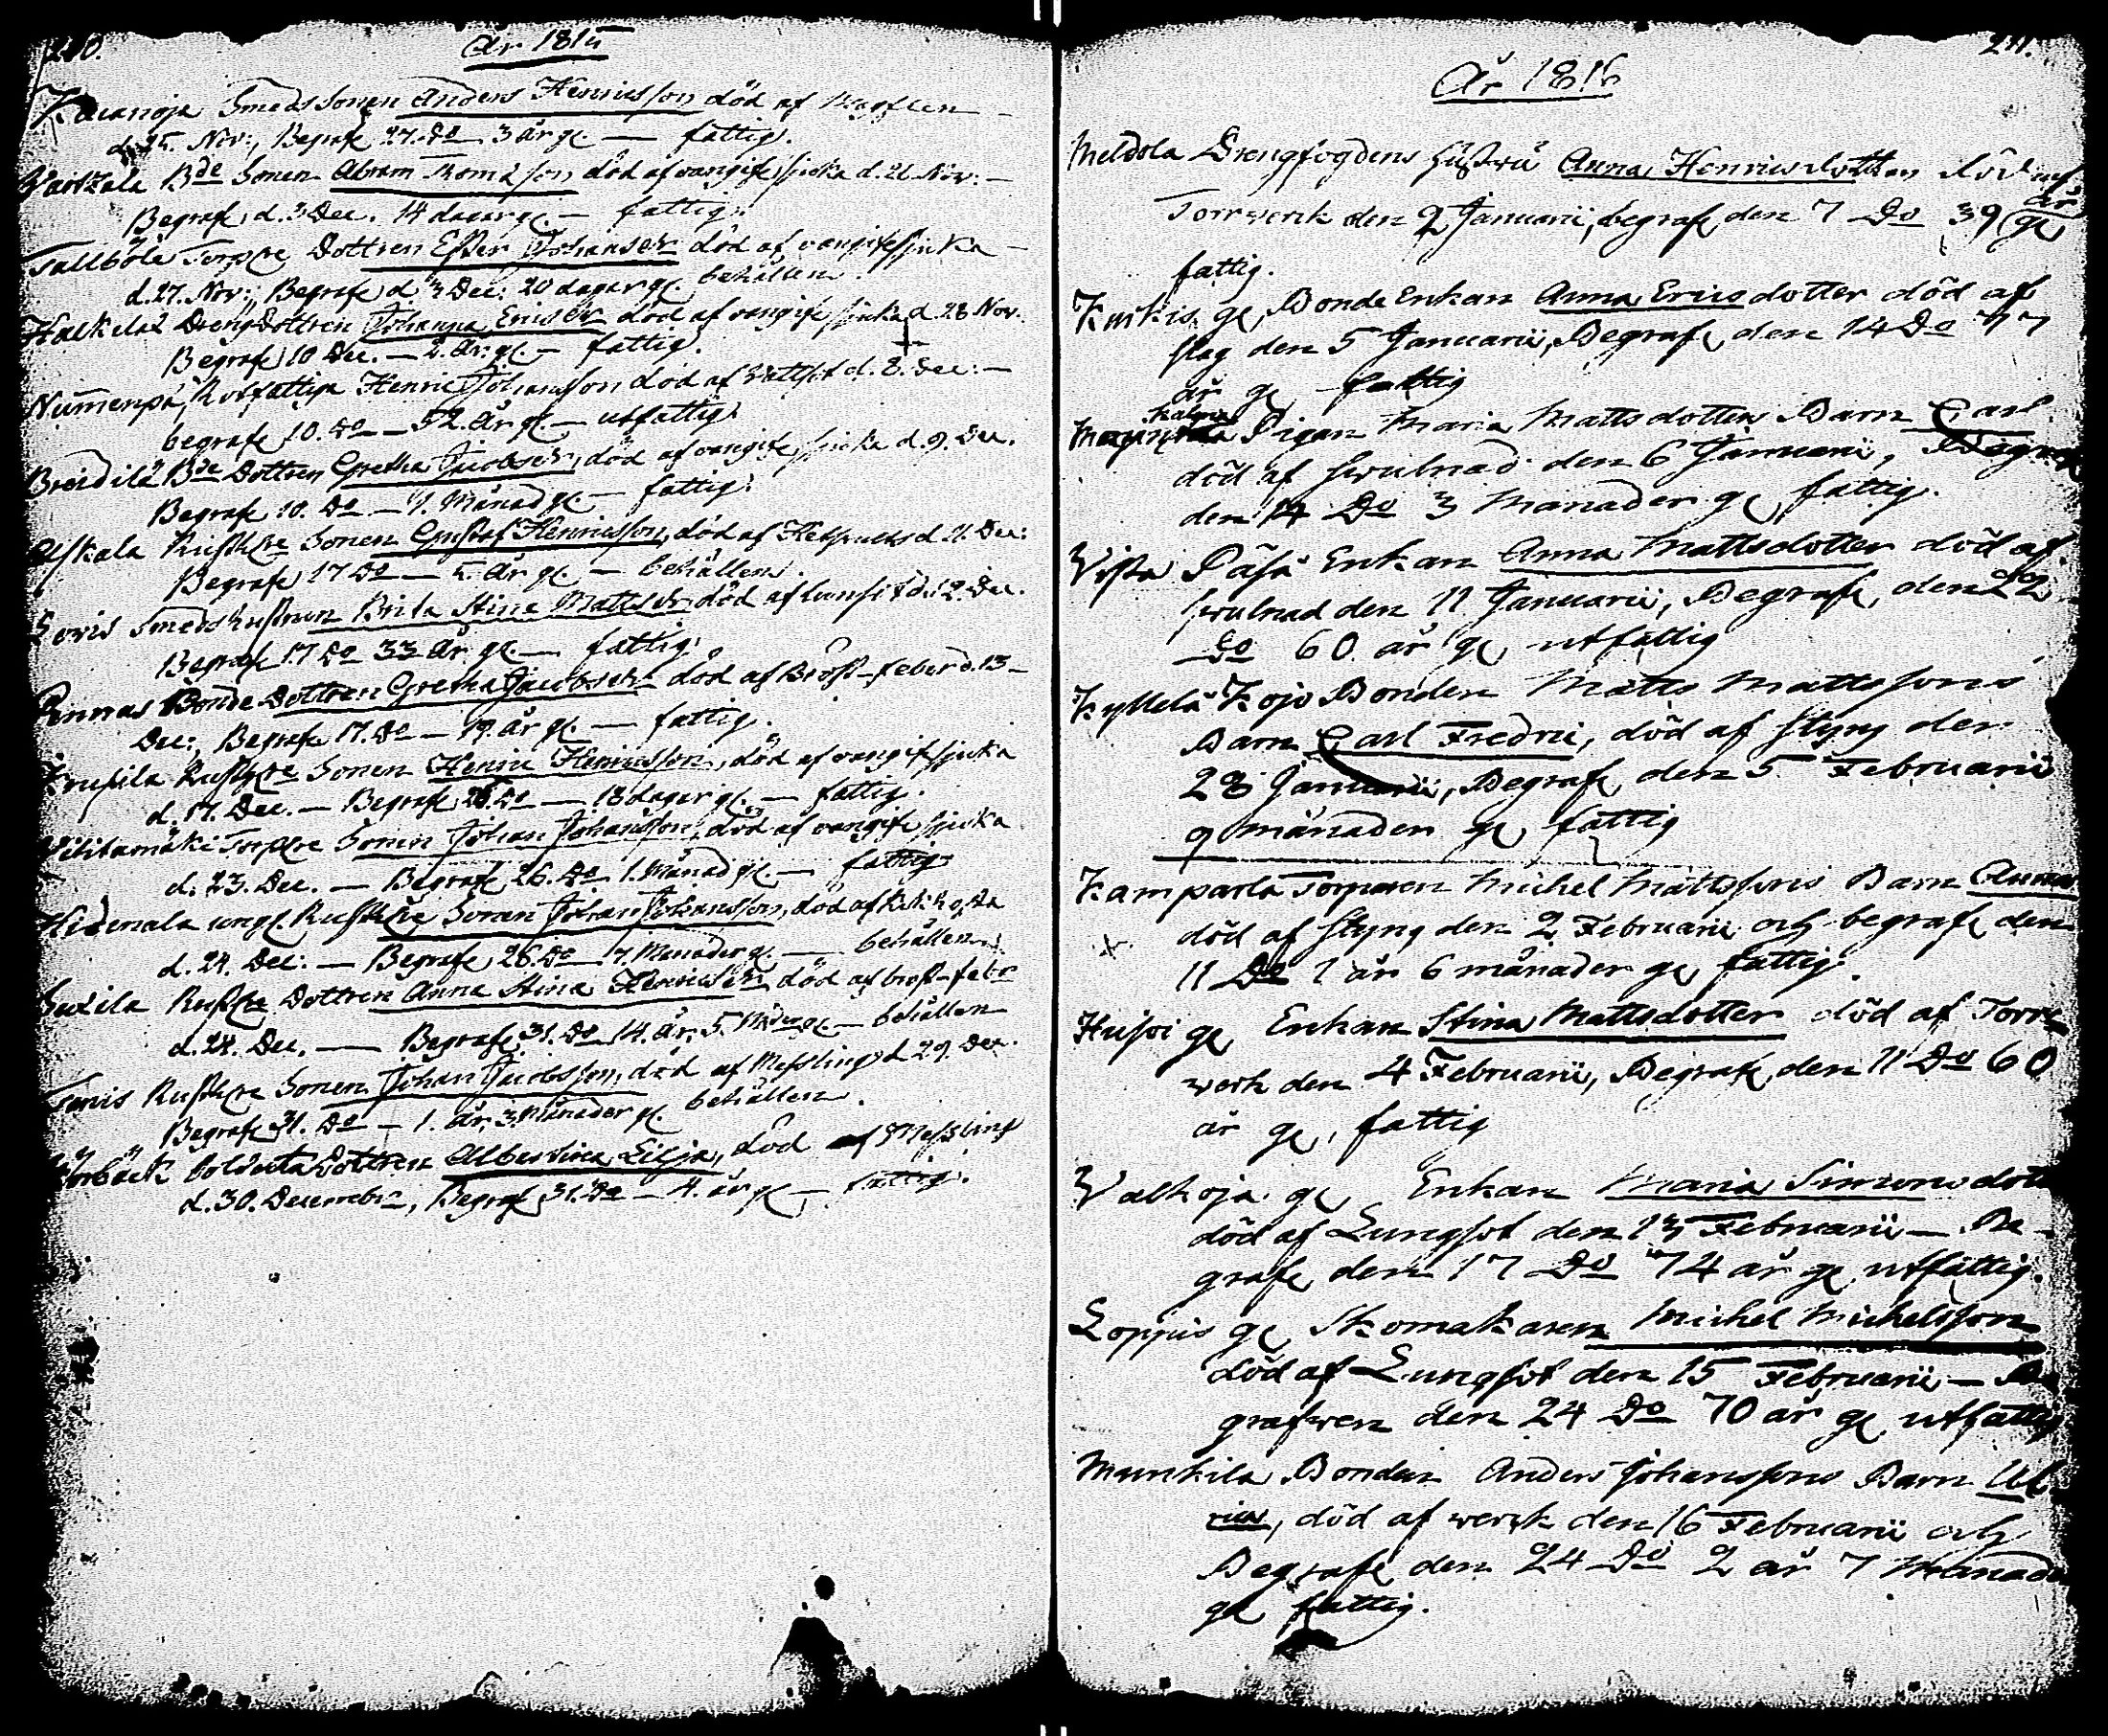 210.
År 1815
Smedssonen Anders Henricsson död af
d. 25. Nov:, Begrafs 27. Do 3 år gl. — fattig.
Bde Sonen Abram Thomasson död af vangifs siuka d. 21 Nov: —
Begrafs d. 3 Dec. 14 dagar gl. — fattig.
Tallböle Torpre Dottren Ester Johansdr död af vangifs siuka —
d. 27. Nov:, Begrafs d. 3 Dec: 20 dagar gl. behållen.
Dreng Dottren Johanna Ericsdr död af vangifs siuka d 28 Nov.
Begrafs 10 Dec. — 2. År gl. — fattig.
Numenpä, Rotfattiga Henric Johansson död af Vattsot d. 8. Dec: —
begrafs 10. Do — 52. År gl. — utfattig.
Bde Dottren Gretha Jacobsdr, död af vangifs siuka d. 9. Dec.
Begrafs 10. Do — 4. Månad gl. — fattig.
Sonen Gustaf Henricsson, död af d. 11. Dec:
Begrafs 17 Do — 5. År gl. — behållen.
Smedshustrun Brita Stina Mattsdr död af Lunsot d. 12. Dec.
Begrafs 17 Do 33 År gl. — fattig.
Pennas Bonde Dottren Gretha Jacobsdr död af Bröst-feber d. 13 —
Dec:, Begrafs 17. Do — 19. År gl. — fattig.
Sonen Henric Henricsson, död af vangifs siuka
d. 17. Dec. — Begrafs 26 Do — 18 dagar gl. — fattig.
Torpre Sonen Johan Johansson, död af vangifs siuka
d. 23. Dec. — Begrafs 26. Do 1. Månad gl. — fattig
Sonen Johan Johansson, död af Kikhosta
d. 24. Dec: — Begrafs 26. Do 7. Månader gl. — behållen
Dottren Anna Stina Henricsdr, död af brost-febr
d. 24. Dec. — Begrafs 31. Do 14. År, 5. Måder gl. — behållen
Sonen Johan Jacobsson, död af Messling d 29. Dec.
Begrafs 31. Do — 1. År, 3 Månader gl. behållen.
Soldate Dottren Albertina Lilja, död af Messling
d. 30. Decembr, Begraf 31. Do — 4. år gl — fattig.
211.
År 1816
Meldola Drengfogdens Hustru Anna Henricsdotter död af
Torrverk den 2 Januarii, begrafs den 7 Do 39 år gl
fattig.
gl, Bonde Enkan Anna Ericsdotter död af
slag den 5 Januarii, Begrafs den 14 Do 77
år gl, fattig
Pigan Maria Mattsdotters Barn Carl
död af swulnad den 6 Januarii, Begrafs
den 14 Do 3 Månader gl, fattig.
Wista Påså Enkan Anna Mattsdotter död af
swulnad den 11 Januarii, Begrafs, den 22
Do 60 år gl, utfattig
Kyllelä Kojo Bonden Matts Mattssons
Barn Carl Fredric, död af styng den
28 Januarii, Begrafs, den 5 Februarii
9 månader gl, fattig
Kamparla Torparen Michel Mattssons Barn Anna
död af Styng den 2 Februarii och begrafs den
11 Do 1 år 6 månader gl, fattig.
gl, Enkan Stina Mattsdotter död af Torr
verk den 4 Februarii, Begrafs, den 11 Do 60
år gl, fattig
Walkoja gl, Enkan Maria Simonsdott
död af Lungsot den 13 Februarii — Be-
grafs, den 17 Do 74 år gl, utfattig.
Loppis gl, Skomakaren Michel Michelsson
död af Lungsot den 15 Februarii — Be
grafwen den 24 Do 70 år gl, utfattig
Munkila Bonden Anders Johanssons Barn Ul-
rica, död af werk den 16 Februarii och
Begrafs den 24 Do 2 år 7 Månader
gl fattig.